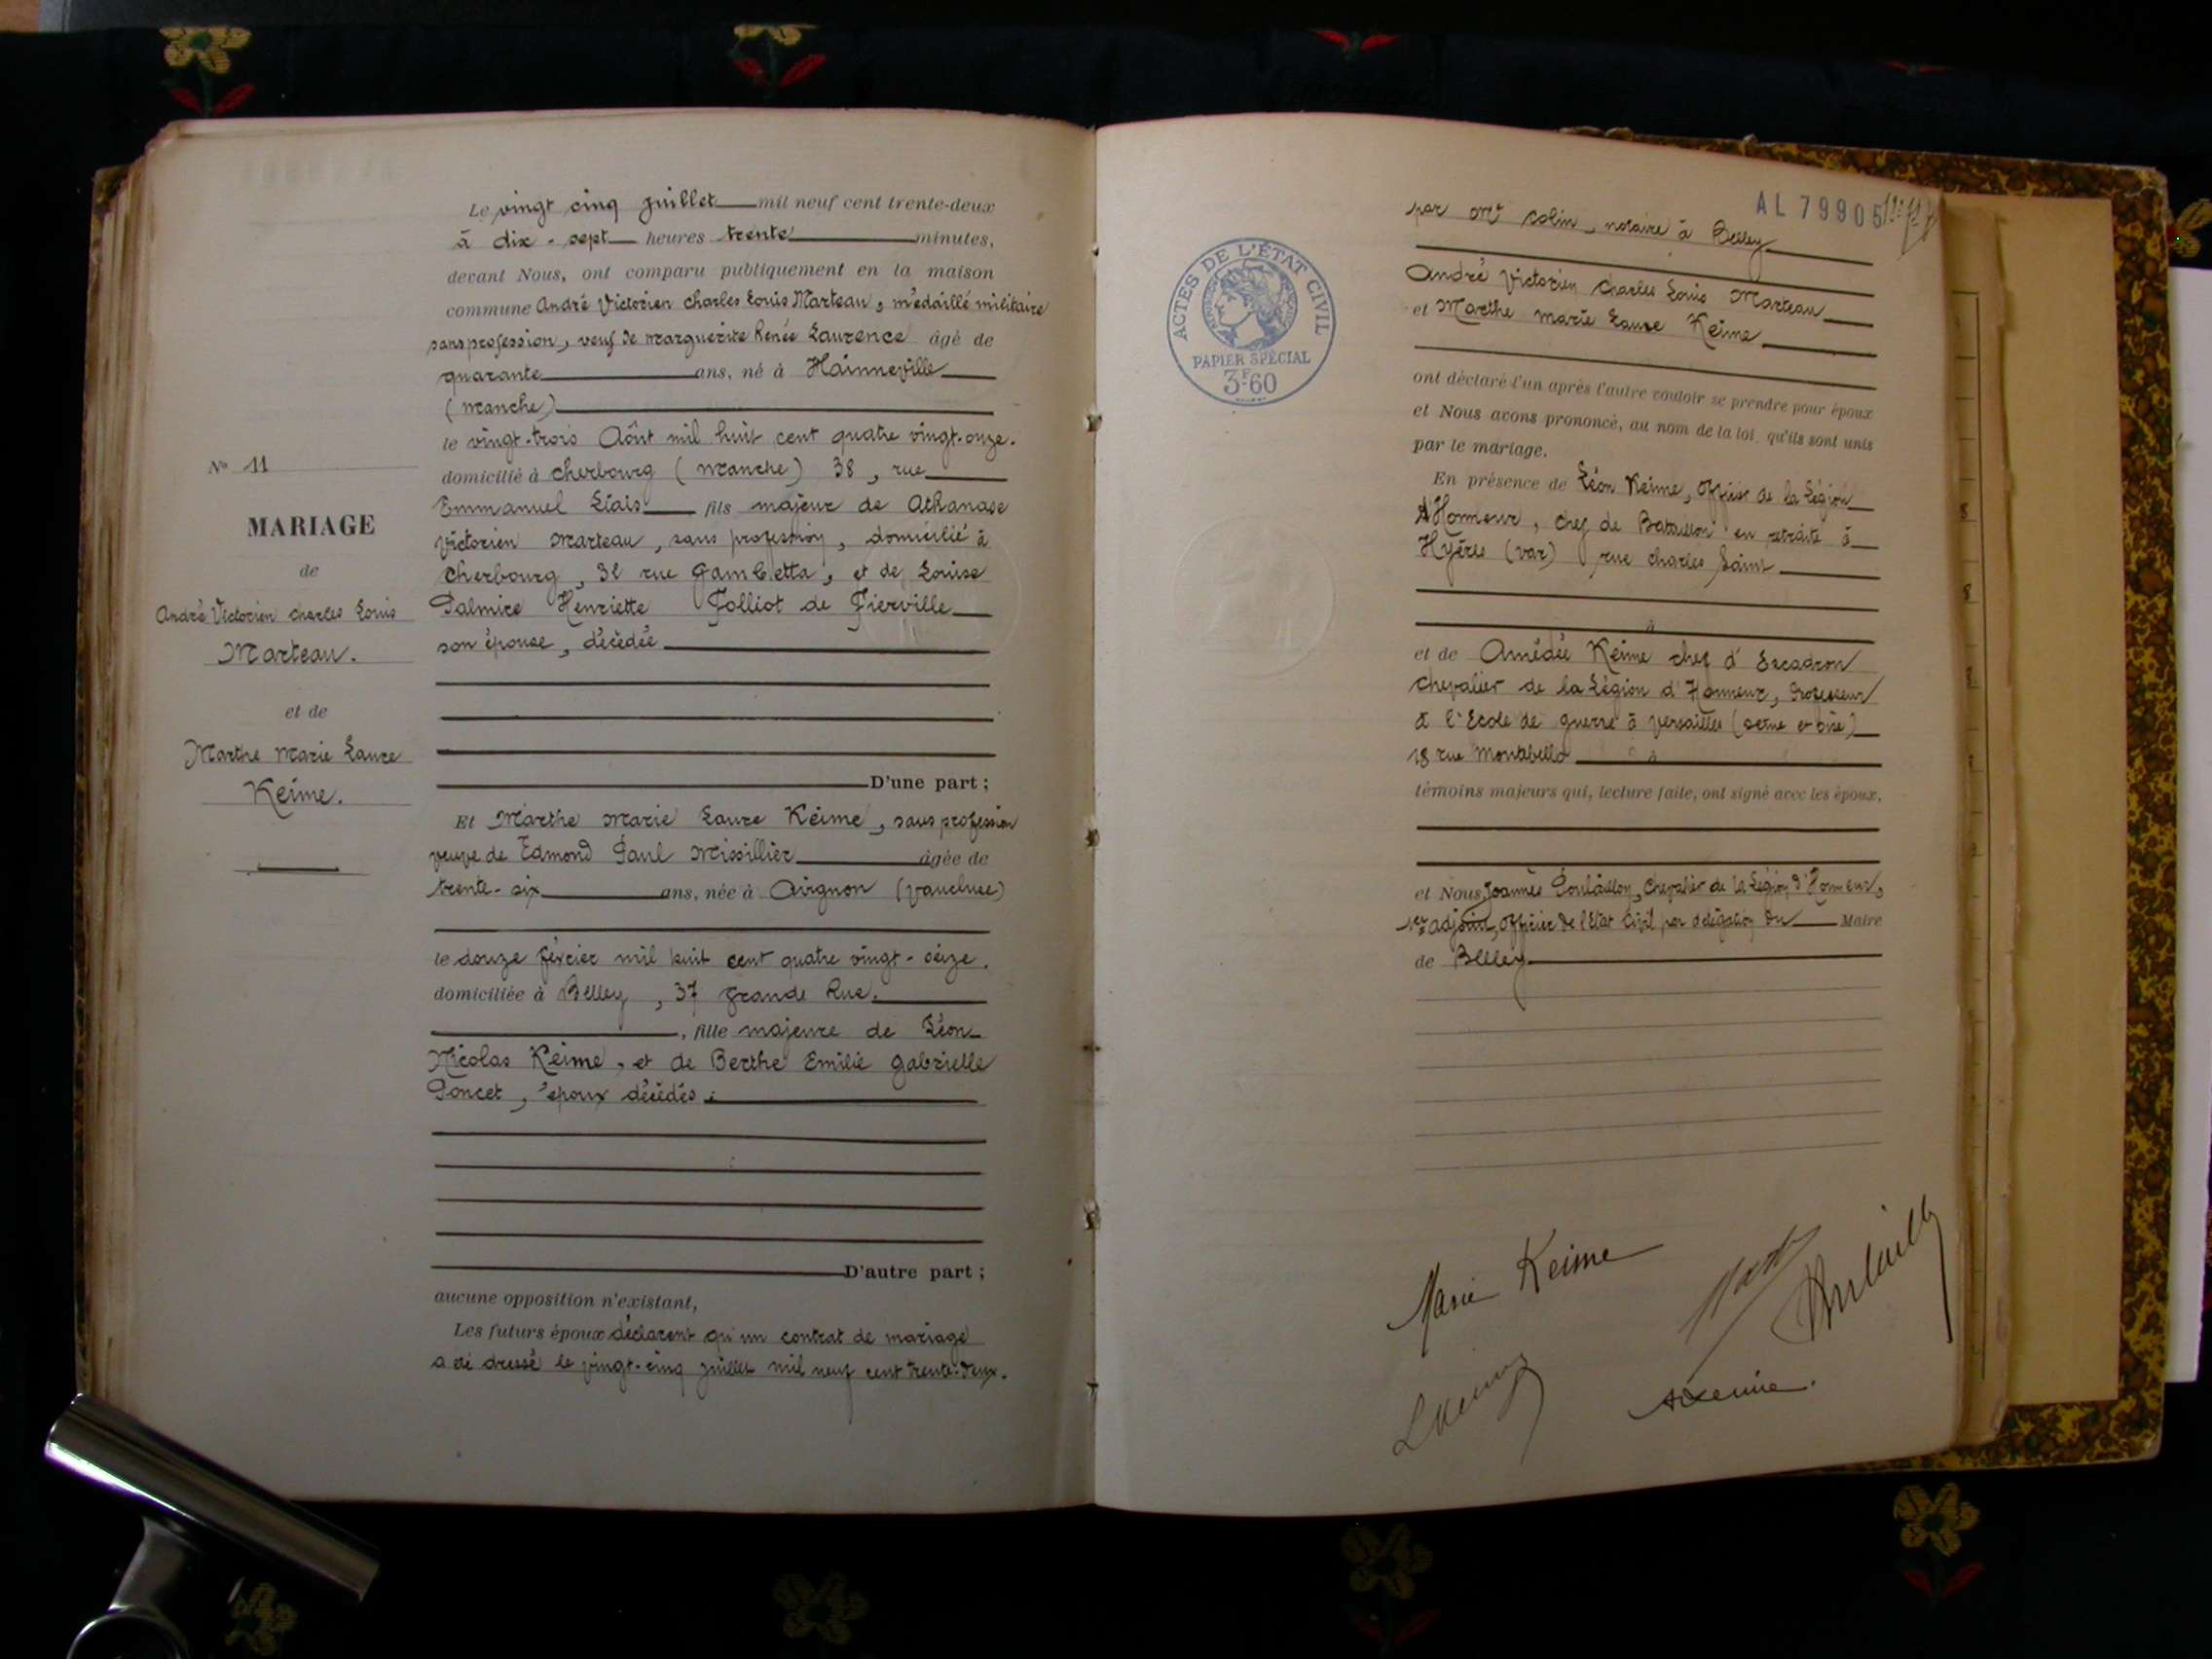 Le vingt cinq juillet mil neuf cent trente-deux
à dix-sept heures trente minutes,
devant Nous, ont comparu publiquement en la maison
commune André Victorien Charles Louis Marteau, médaillé militaire
sans profession, veuf de Marguerite Renée Laurence âgé de
quarante ans, né à Hainneville
(Manche)
le vingt-trois Août mil huit cent quatre vingt-onze.
domicilié à Cherbourg (Manche) 38, rue
Emmanuel Liais fils majeur de Athanase
Victorien Marteau, sans profession, domicilié à
Cherbourg, 32 rue Gambetta, et de Louise
Palmire Henriette Folliot de Fierville
son épouse, décédée
D'une part ;
Et Marthe Marie Laure Keime, sans profession
veuve de Edmond Paul Missillier âgée de
trente-six ans, née à Avignon (Vaucluse)
le douze février mil huit cent quatre vingt-seize.
domiciliée à Belley, 37 grande Rue.
, fille majeure de Léon
Nicolas Keime, et de Berthe Emilie Gabrielle
Poncet, époux décédés ;
D'autre part ;
aucune opposition n'existant,
Les futurs époux déclarent qu'un contrat de mariage
a été dressé le vingt-cinq juillet mil neuf cent trente-deux.
N° 11
MARIAGE
de
André Victorien Charles Louis
Marteau.
et de
Marthe Marie Laure
Keime.
AL 79905
par Me Colin, notaire à Belley
André Victorien Charles Louis Marteau
et Marthe Marie Laure Keime
ont déclaré l'un après l'autre vouloir se prendre pour époux
et Nous avons prononcé, au nom de la loi, qu'ils sont unis
par le mariage.
En présence de Léon Keime, Officier de la Légion
d'Honneur, chef de Bataillon en retraite à
Hyères (Var) rue Charles Saint
à
et de Amédée Keime chef d'Escadron
Chevalier de la Légion d'Honneur, Professeur
à l'Ecole de guerre à Versailles (Seine et Oise)
18 rue Montebello à
témoins majeurs qui, lecture faite, ont signé avec les époux,
et Nous, Joannès Poulaillon, Chevalier de la Légion d'Honneur,
1er adjoint, Officier de l'Etat Civil par délégation du Maire
de Belley
ACTES DE L'ÉTAT CIVIL
PAPIER SPÉCIAL
3F60
Marie Keime
LKeime
AKeime.